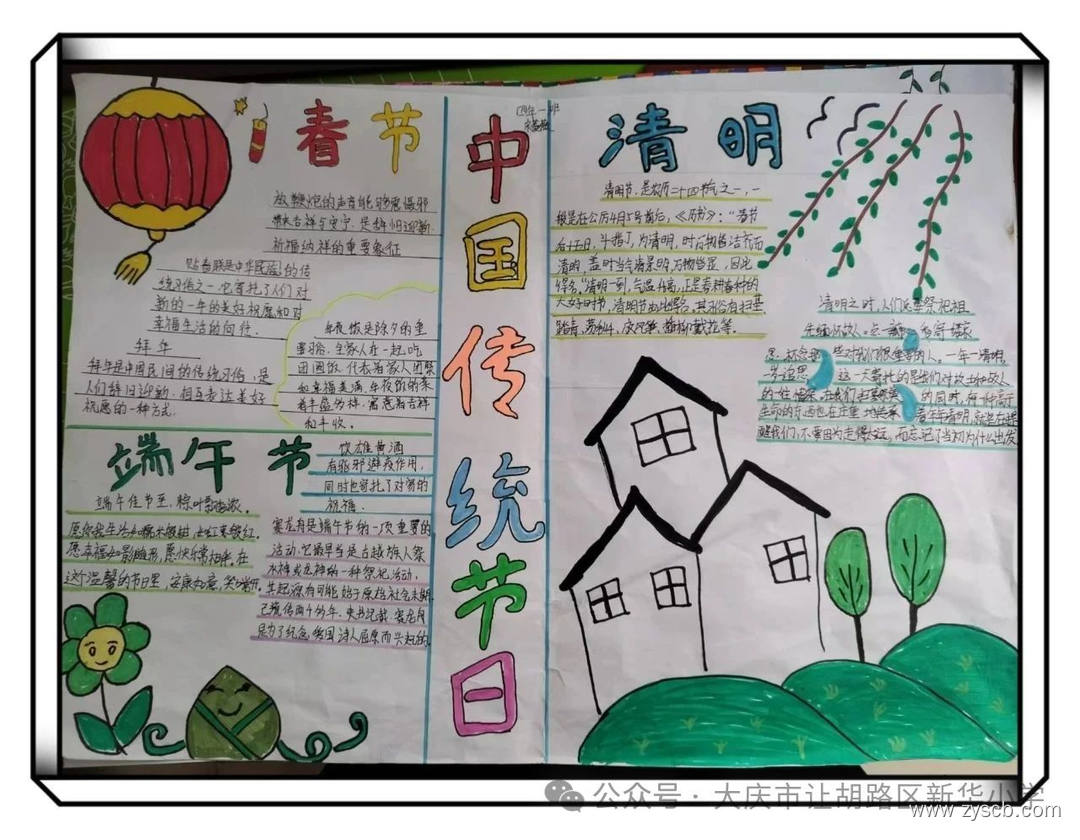 春节
放鞭炮的声音能够震慑邪
带来吉祥与安宁.是辞旧迎新.
祈福纳祥的重要象征
贴春联是中华民族的传
统习俗之一.它寄托了人们对
新的一年的美好祝愿和对
幸福生活的向往.
拜年
拜年是中国民间的传统习俗,是
人们辞旧迎新.相互表达美好
祝愿的一种方式.
年夜饭是除夕的重
要习俗.全家人在一起吃
团圆饭.代表着家人团聚
和幸福美满.年夜饭的菜
肴丰盛多样.寓意着吉祥
和丰收.
端午节
端午佳节至,粽叶飘香浓.
愿幸福如影随形,愿快乐常相伴.在
这个温馨的节日里
饮雄黄酒
有驱邪避疫作用,
同时也寄托了对易的
祝福.
赛龙舟是端午节的一项重要的
活动.它最早当是古越族人祭
水神或龙神的一种祭祀活动,
其起源有可能始于原始社会末期.
已流传两千多年.史书记载.赛龙舟
是为了纪念爱国诗人屈原而兴起的.
中国传统节日
四年一班
清明
清明节.是农历二十四节气之一,一
般是在公历4月5号前后,《历书》:"春分
后十五日,斗指丁,为清明,时万物皆洁齐而
清明,盖时当气清景明,万物皆显,因此
得名."清明一到,气温升高,正是春耕春种的
大好时节,清明节
踏青、荡秋千、放风筝、插柳戴花等.
清明之时,人们民 祭祀祖
先
一年一清明,
一岁
生命的东西也在注重
醒我们,不要因为走得太远,而忘记了当初为什么出发
公众号·大庆市让胡路区新华小学
www.zyscb.com